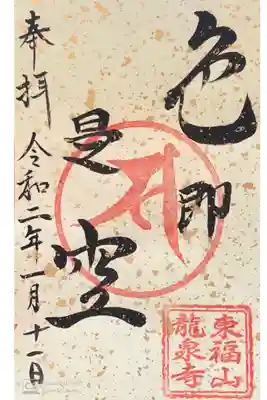 色即
是
空
奉拝
令和二年一月十一日
東福山
龍泉寺